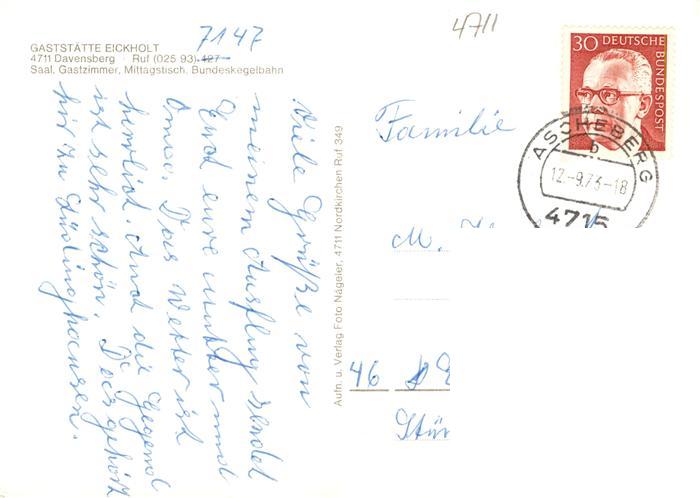 GASTSTÄTTE EICKHOLT
4711 Davensberg · Ruf (025 93) 427
7147
Saal, Gastzimmer, Mittagstisch, Bundeskegelbahn
Viele Grüße von
meinem Ausflug sendet
Euch eure Mutter und
Oma. Das Wetter ist
herrlich. Und die Gegend
ist sehr schön. Das gehört
hir zu Lüdinghausen.
Aufn. u. Verlag Foto Nägeler, 4711 Nordkirchen Ruf 349
4711
30 DEUTSCHE
BUNDESPOST
ASCHEBERG
b
12.-9.73-18
4715
Familie
M.
46